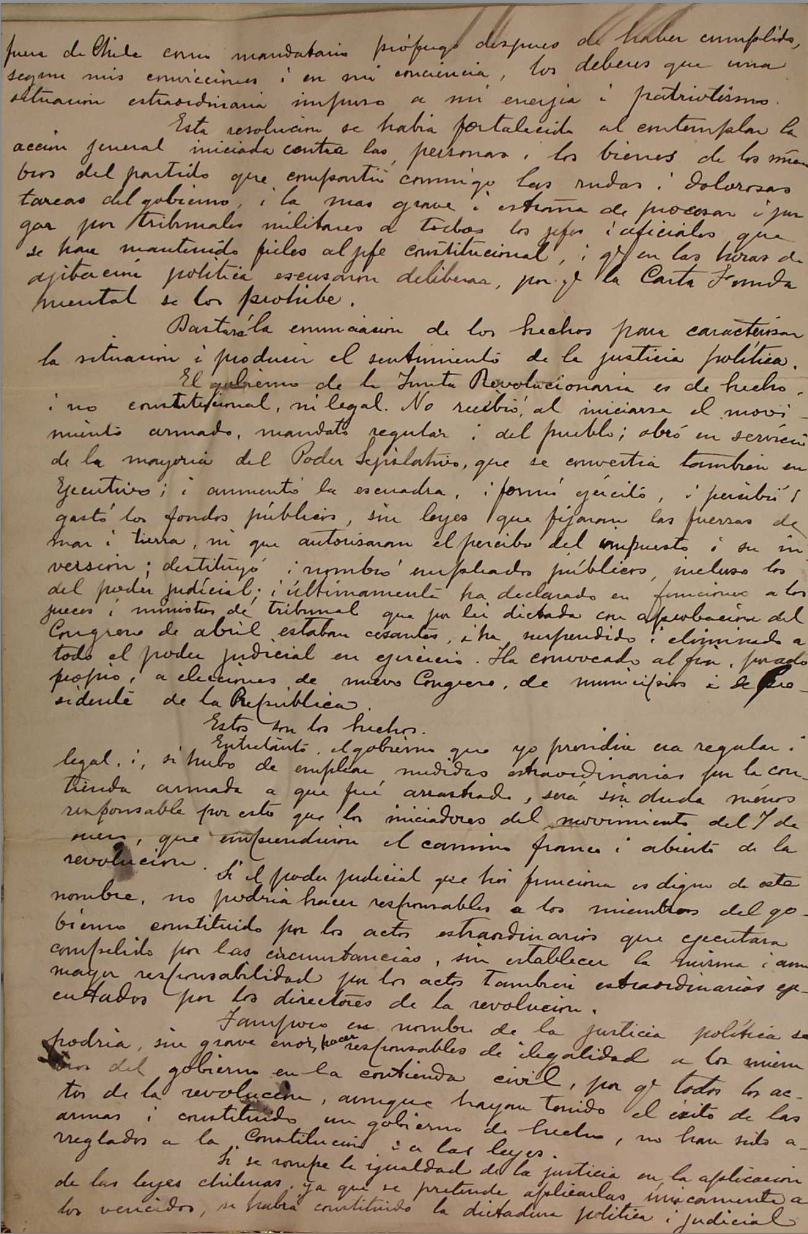 fuera de Chile como mandatario prófugo despues de haber cumplido,
segun mis convicciones i en mi conciencia, los deberes que una
situacion estraordinaria impuso a mi energia i patriotismo.
Esta resolucion se habia fortalecido al contemplar la
accion jeneral iniciada contra las personas i los bienes de los miem
bros del partido que compartió conmigo las rudas i dolorosas
tareas del gobierno, i la mas grave i estraña de procesar i juz
gar por tribunales militares a todos los jefes i oficiales que
se han mantenido fieles al jefe constitucional, i qe en las horas de
ajitacion política escusaron deliberar, por qe la Carta Funda
mental se los prohibe.
Bastará la enunciacion de los hechos para caracterisar
la situacion i producir el sentimiento de la justicia política.
El gobierno de la Junta Revolucionaria es de hecho
i no constitucional, ni legal. No recibió, al iniciarse el movi-
miento armado, mandato regular i del pueblo; obró en servicio
de la mayoría del Poder Lejislativo, que se convertia tambien en
Ejecutivo; i aumentó la escuadra, i formó ejército, i percibió i
gastó los fondos públicos, sin leyes que fijaran las fuerzas de
mar i tierra, ni que autorisaran el percibo del impuesto i su in
version; destituyó i nombró empleados públicos, incluso los
del poder judicial; i últimamente ha declarado en funciones a los
jueces i ministros de tribunal que por lei dictada con aprobacion del
Congreso de abril estaban cesantes, i ha suspendido i eliminado a
todo el poder judicial en ejercicio. Ha convocado al fin, por acto
propio, a elecciones de nuevo Congreso, de municipios i de Pre-
sidente de la República.
Estos son los hechos.
Entretanto, el gobierno que yo presidia era regular i
legal, i, si hubo de emplear medidas estraordinarias por la con-
tienda armada a que fué arrastrado, será sin duda menos
responsable por esto que los iniciadores del movimiento del 7 de
enero, que emprendieron el camino franco i abierto de la
revolucion.
Si el poder judicial que hoi funciona es digno de este
nombre, no podria hacer responsables a los miembros del go-
bierno constituido por los actos estraordinarios que ejecutara
compelido por las circunstancias, sin establecer la misma i aun
mayor responsabilidad por los actos tambien estraordinarios eje-
cutados por los directores de la revolucion.
Tampoco en nombre de la justicia política se
podria, sin grave error, hacer responsables de ilegalidad a los miem
bros del gobierno en la contienda civil, por qe todos los ac-
tos de la revolucion, aunque hayan tenido el éxito de las
armas i constituido un gobierno de hecho, no han sido a-
rreglados a la Constitucion i a las leyes.
Si se rompe la igualdad de la justicia en la aplicacion
de las leyes chilenas, ya que se pretende aplicarlas únicamente a
los vencidos, se habrá constituido la dictadura política i judicial